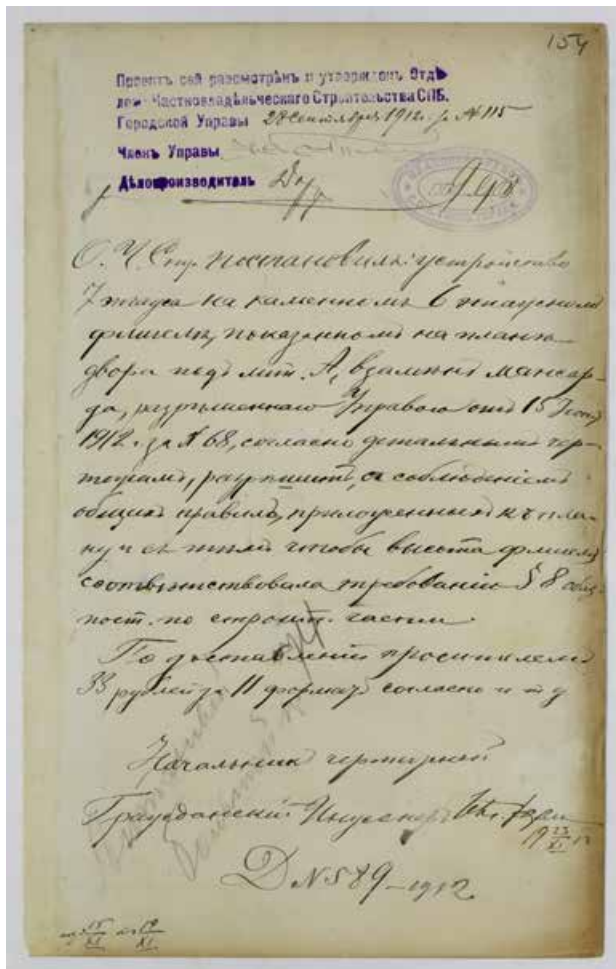 154
Проектъ сей разсмотрѣнъ и утвержденъ Отдѣ
ломъ Частновладѣльческаго Строительства СПБ.
Городской Управы 28 Сентября 1912 г. за № 115
Членъ Управы
Дѣлопроизводитель
О. Ч. Стр. постановилъ: устройство
7 этажа на каменномъ 6 этажномъ
флигелѣ, показанномъ на планѣ
двора подъ лит. А, взамѣнъ мансар-
да, разрѣшеннаго Управою отъ 15
1912 г. за № 68, согласно детальнымъ чер-
тежамъ, разрѣшить, съ соблюденіемъ
общихъ правилъ, приложенныхъ къ пла-
ну и съ тѣмъ чтобы высота флигеля
соотвѣтствовала требованію § 8 обяз.
пост. по строит. части.
По доставленіи просителемъ
33 рублей за 11 форматъ согласно и т д
Начальникъ чертежной
Гражданскій Инженеръ
D N 589–1912